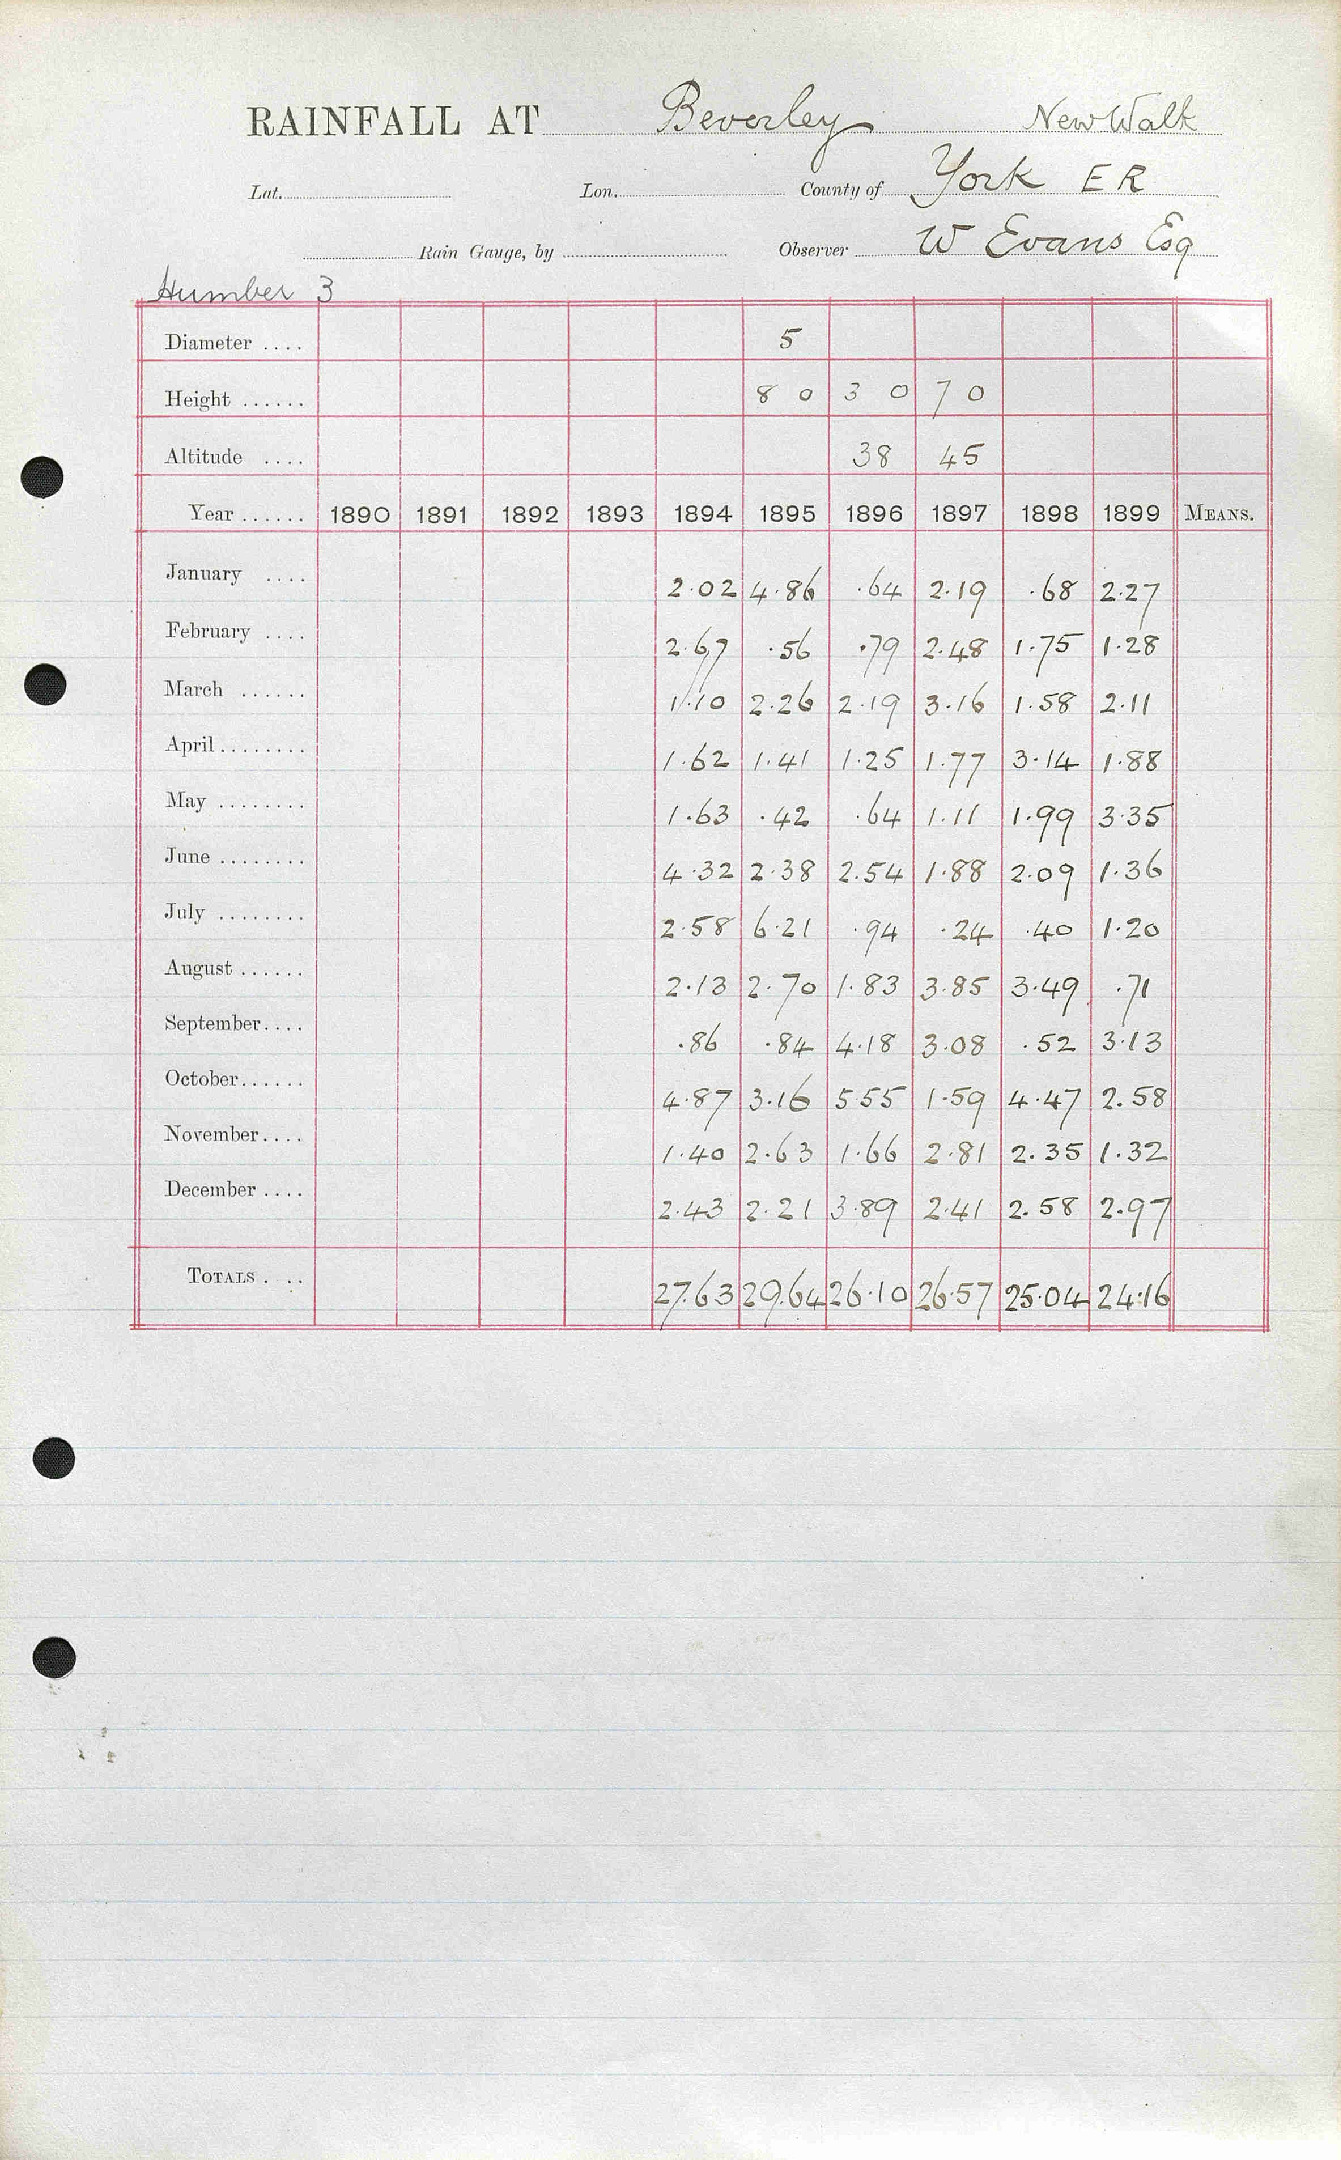 RAINFALL AT Beverley New Walk
Lat. Lon. County of York E R
Rain Gauge, by Observer W Evans Esq
Humber 3
Diameter .... 5
Height ...... 8 0 3 0 7 0
Altitude .... 38 45
Year ...... 1890 1891 1892 1893 1894 1895 1896 1897 1898 1899 MEANS.
January .... 2.02 4.86 .64 2.19 .68 2.27
February .... 2.67 .56 .79 2.48 1.75 1.28
March ...... 1.10 2.26 2.19 3.16 1.58 2.11
April ........ 1.62 1.41 1.25 1.77 3.14 1.88
May ........ 1.63 .42 .64 1.11 1.99 3.35
June ........ 4.32 2.38 2.54 1.88 2.09 1.36
July ........ 2.58 6.21 .94 .24 .40 1.20
August ...... 2.13 2.70 1.83 3.85 3.49 .71
September.... .86 .84 4.18 3.08 .52 3.13
October...... 4.87 3.16 5.55 1.59 4.47 2.58
November.... 1.40 2.63 1.66 2.81 2.35 1.32
December .... 2.43 2.21 3.89 2.41 2.58 2.97
TOTALS . .. 27.63 29.64 26.10 26.57 25.04 24.16